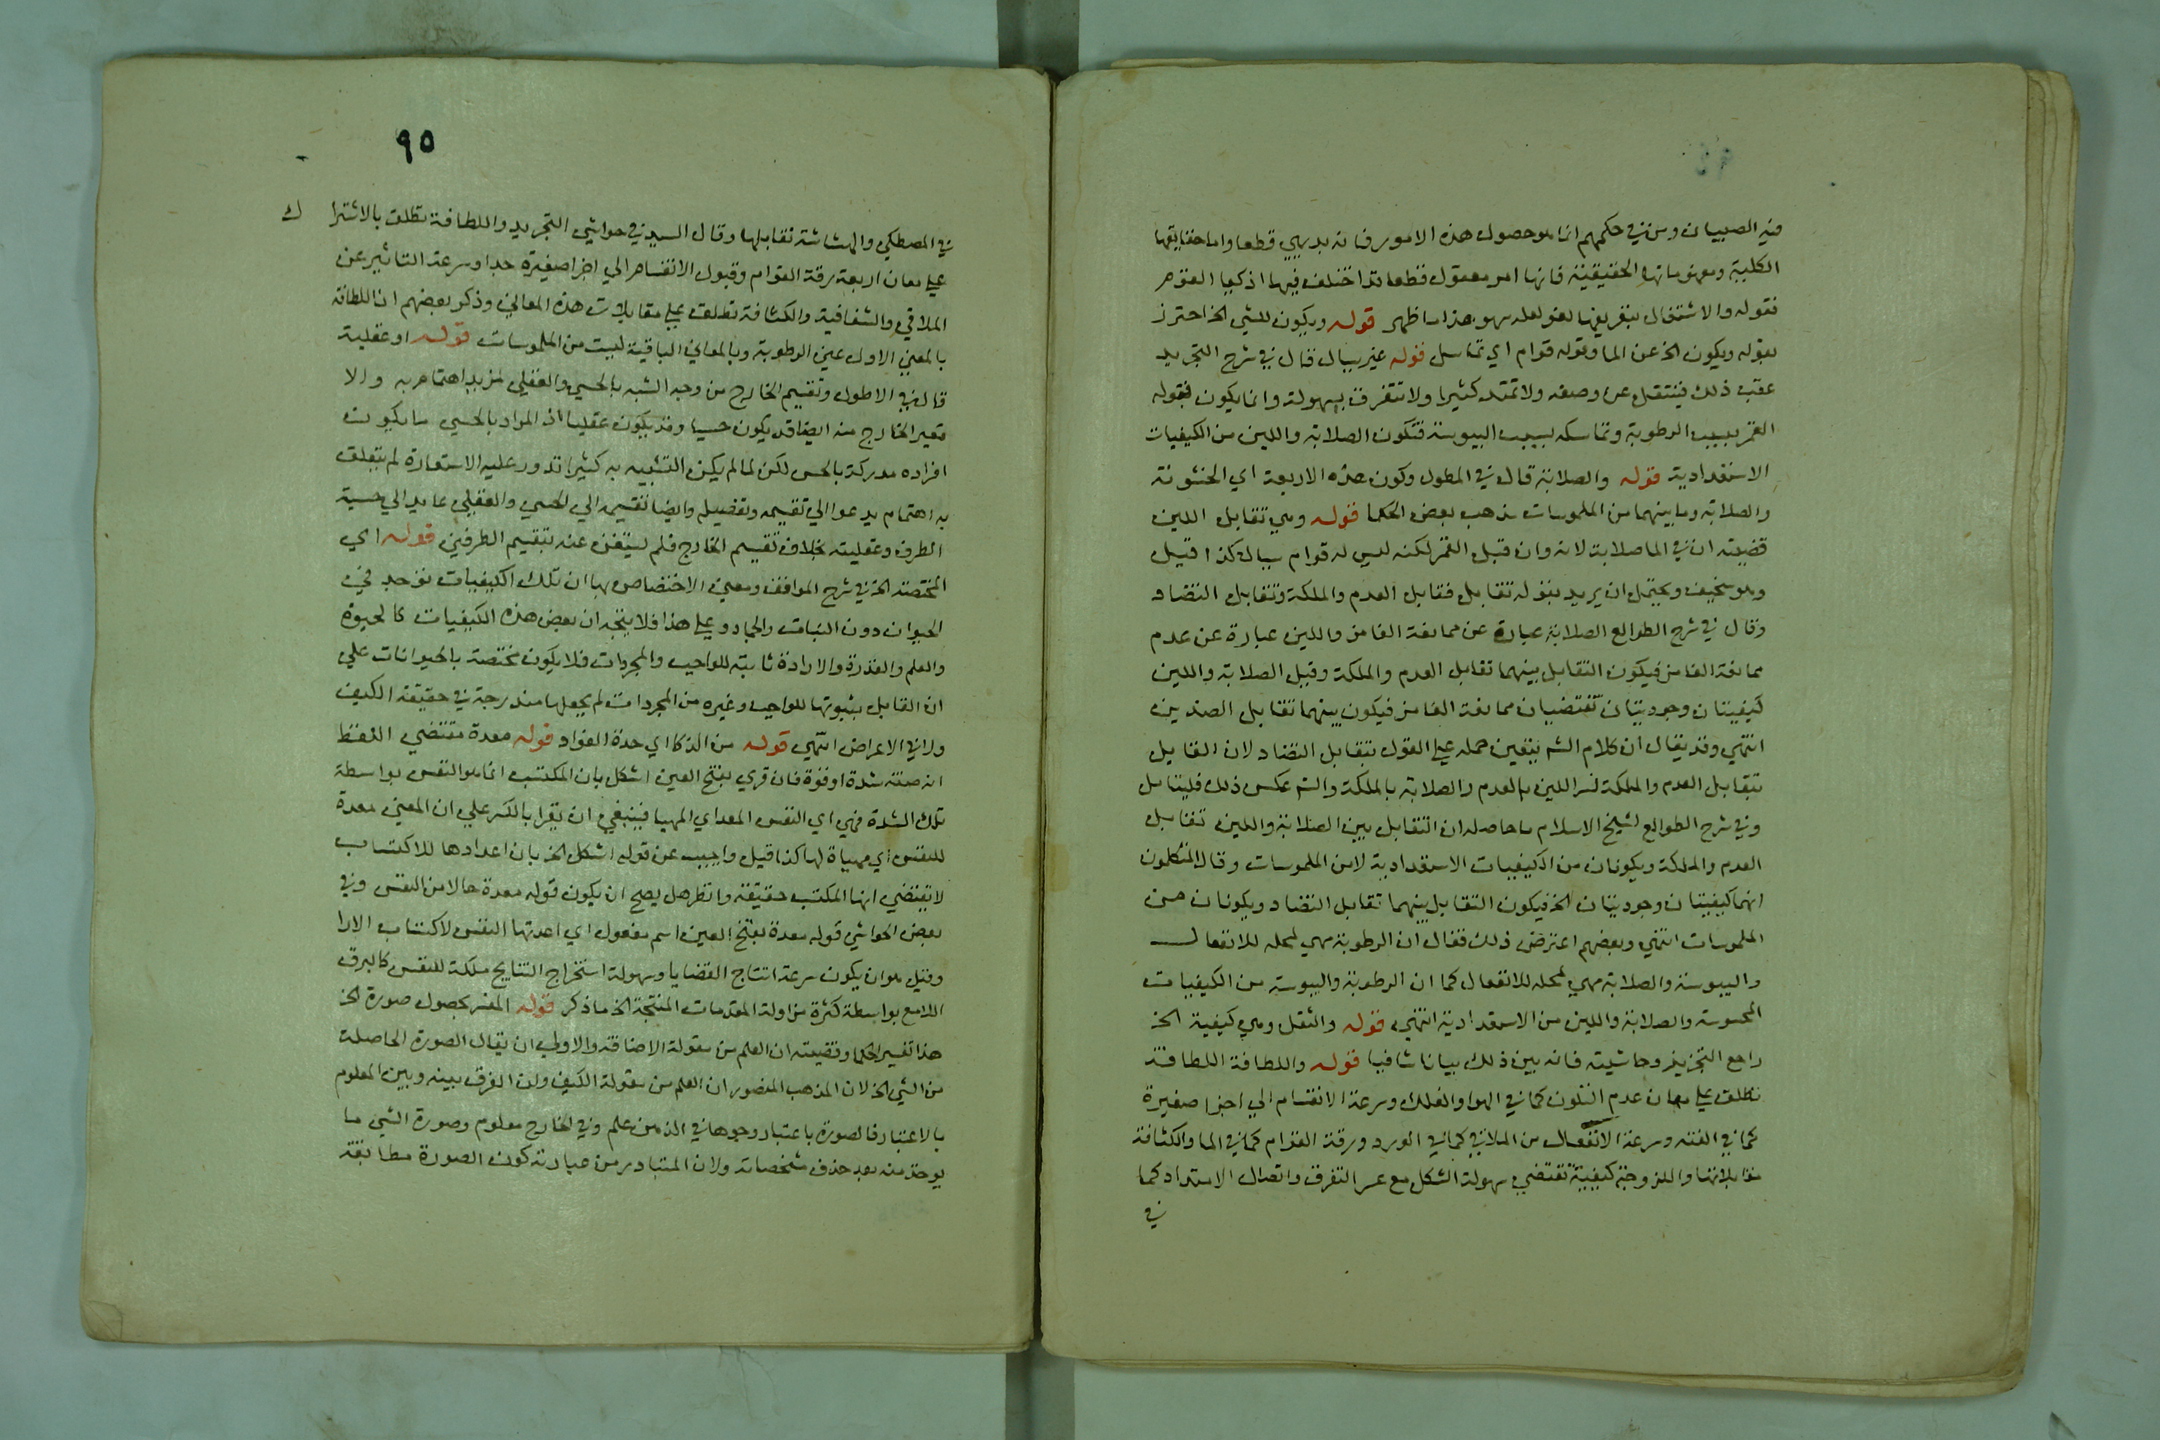 فيه الصبيان ومن في حكمهم انما هو حصول هذه الامور فانه بديهي قطعا واما حقايقها
الكلية ومفهوماتها الحقيقية فانها امر معقول قطعا قد اختلف فيها اذكيا القوم
فقوله والاشتغال بتعريفها لغو لعله سهو هذا ما ظهر قوله ويكون للشي الخ احترز
بقوله ويكون الخ عن الما وقوله قوام اي تماسل قوله غير سيال قال في شرح التجريد
عقب ذلك فينتقل عن وضعه ولا تمتد كثيرا ولا تتفرق بسهولة وانما يكون قبوله
الغمز بسبب الرطوبة وتماسكه بسبب اليبوسة فتكون الصلابة واللين من الكيفيات
الاستعدادية قوله والصلابة قال في المطول وكون هذه الاربعة اي الخشونة
والصلابة وما بينهما من الملموسات مذهب بعض الحكما قوله وهي تقابل اللين
قضيته ان في الما صلابة لانه وان قبل الغمز لكنه ليس له قوام سيال كذا قيل
وهو سخيف ويحتمل ان يريد بقوله تقابل فتقابل العدم والملكة وتقابل التضاد
وقال في شرح الطوالع الصلابة عبارة عن ممانعة الغامز واللين عبارة عن عدم
ممانعة الغامز فيكون التقابل بينهما تقابل العدم والملكة وقيل الصلابة واللين
كيفيتان وجوديتان تقتضيان ممانعة الغامز فيكون بينهما تقابل الضدين
انتهي وقد يقال ان كلام الش يتعين حمله علي القول بتقابل التضاد لان القايل
بتقابل العدم والملكة فسر اللين بالعدم والصلابة بالملكة والش عكس ذلك فليتامل
وفي شرح الطوالع لشيخ الاسلام ما حاصله ان التقابل بين الصلابة واللين تقابل
العدم والملكة ويكونان من الكيفيات الاستعدادية لا من الملموسات وقال المتكلمون
انهما كيفيتان وجوديتان الخ فيكون التقابل بينهما تقابل التضاد ويكونان من
الملموسات انتهي وبعضهم اعترض ذلك فقال ان الرطوبة تهي لمحله للانفعال
واليبوسة والصلابة تهي لمحله للانفعال كما ان الرطوبة واليبوسة من الكيفيات
المحسوسة والصلابة واللين من الاستعدادية انتهي قوله والثقل وهي كيفية الخ
راجع التجريد وحاشيته فانه بين ذلك بيانا شافيا قوله واللطافة اللطافة
تطلق علي معان عدم التلون كما في الهوا والفلك وسرعة الانقسام الي اجزا صغيرة
كما في الفته وسرعة الانفعال من الملاقي كما في الورد ورقة القوام كما في الما والكثافة
مقابلاتها واللزوجة كيفية تقتضي سهولة الشكل مع عسر التفرق واتصال الامتداد كما
في
٩٥
في المصطكي والهشاشة تقابلها وقال السيد في حواشي التجريد واللطافة تطلق بالاشتراك
علي معان اربعة رقة القوام وقبول الانقسام الي اجزا صغيرة جدا وسرعة التاثير عن
الملاقي والشفافية والكثافة تطلق علي مقابلات هذه المعاني وذكر بعضهم ان اللطافة
بالمعني الاول عين الرطوبة وبالمعاني الباقية ليست من الملموسات قوله او عقلية
قال في الاطول وتقسيم الخارج من وجه الشبه بالحسي والعقلي لمزيد اهتمام به والا
فغير الخارج منه ايضا قد يكون حسيا وقد يكون عقليا اذ المراد بالحسي ما يكون
افراده مدركة بالحس لكن لما لم يكن التشبيه به كثيرا تدور عليه الاستعارة لم يتعلق
به اهتمام يدعوا الي تقسيمه وتفصيله وايضا تقسيمه الي الحسي والعقلي عايد الي حسية
الطرف وعقليته بخلاف تقسيم الخارج فلم يستغن عنه بتقسيم الطرفين قوله اي
المختصة الخ في شرح المواقف ومعني الاختصاص بها ان تلك الكيفيات توجد في
الحيوان دون النبات والجماد وعلي هذا فلا يتجه ان بعض هذه الكيفيات كالحيوة
والعلم والقدرة والارادة ثابتة للواجب والمجردات فلا يكون مختصة بالحيوانات علي
ان القايل بثبوتها للواجب وغيره من المجردات لم يجعلها مندرجة في حقيقة الكيف
ولا في الاعراض انتهي قوله من الذكا اي حدة الفواد قوله معدة مقتضي اللفظ
انه صفة شدة او قوة فان قري بفتح العين اشكل بان المكتسب انما هو النفس بواسطة
تلك الشدة فهي اي النفس المعد اي المهيا فينبغي ان يقرا بالكسر علي ان المعني معدة
للنفس اي مهياة لها كذا قيل واجيب عن قوله اشكل الخ بان اعدادها للاكتساب
لا يقتضي انها المكتسب حقيقة وانظر هل يصح ان يكون قوله معدة حالا من النفس وفي
بعض الحواشي قوله معدة بفتح العين اسم مفعول اي اعدتها النفس لاكتساب الارا
وقيل هو ان يكون سرعة انتاج القضايا وسهولة استخراج النتايج ملكة للنفس كالبرق
اللامع بواسطة كثرة مزاولة المقدمات المنتجة الخ ما ذكر قوله المفسر بحصول صورة الخ
هذا تفسير الحكما وقضيته ان العلم من مقولة الاضافة والاولي ان يقال الصورة الحاصلة
من الشي الخ لان المذهب المنصور ان العلم من مقولة الكيف ولان الفرق بينه وبين المعلوم
بالاعتبار فالصورة باعتبار وجودها في الذهن علم وفي الخارج معلوم وصورة الشي ما
يوخذ منه بعد حذف مشخصاته ولان المتبادر من عبارته كون الصورة مطابقة